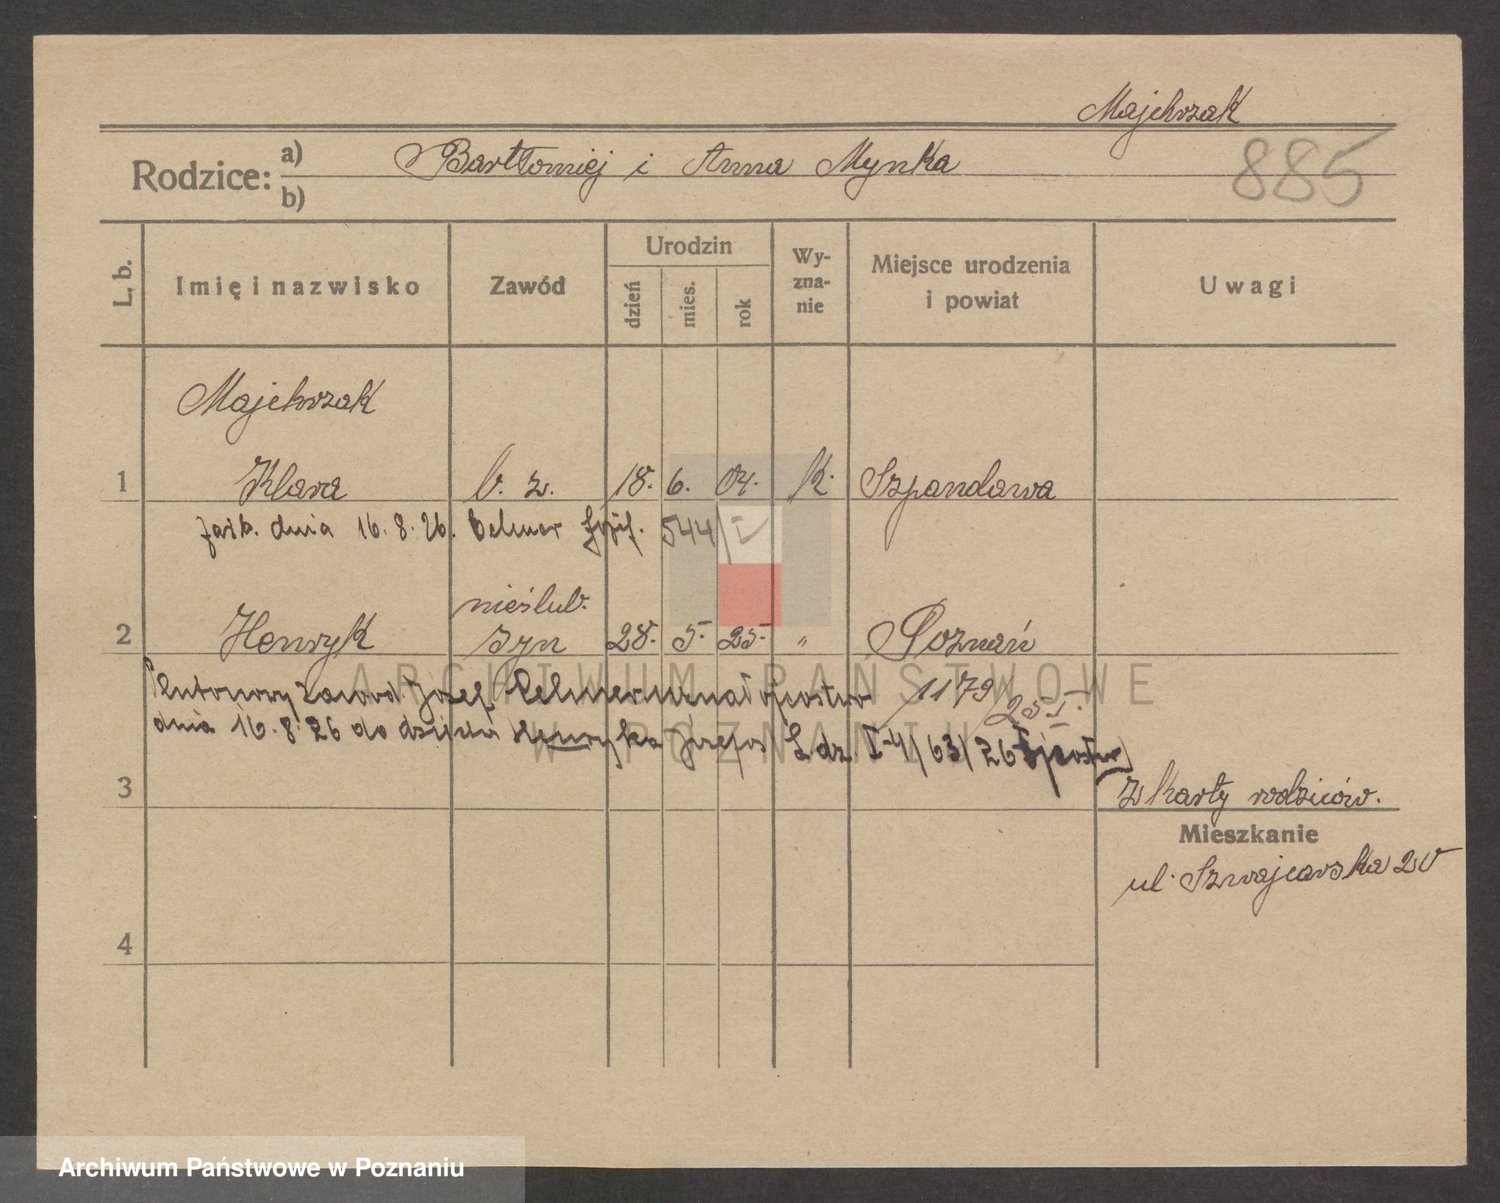 Majchrzak
885
Rodzice: a) Bartłomiej i Anna Mynka
b)
L. b. Imię i nazwisko Zawód Urodzin dzień mies. rok Wyznanie Miejsce urodzenia i powiat Uwagi
Majchrzak
1 Klara b. z. 18. 6. 04. k. Szpandawa
zaśb. dnia 16.8.26. Celmer Józef. 544/I
nieślub.
2 Henryk syn 28. 5. 25. " Poznań
Plutonowy zawod. Józef Celmer uznał ojcostwo 1179/25 I.
dnia 16.8.26 do dziecka Henryka Józefa L dz I-4/63/26
3 z karty rodziców.
Mieszkanie
ul. Szwajcarska 20
4
ARCHIWUM PAŃSTWOWE
W POZNANIU
Archiwum Państwowe w Poznaniu